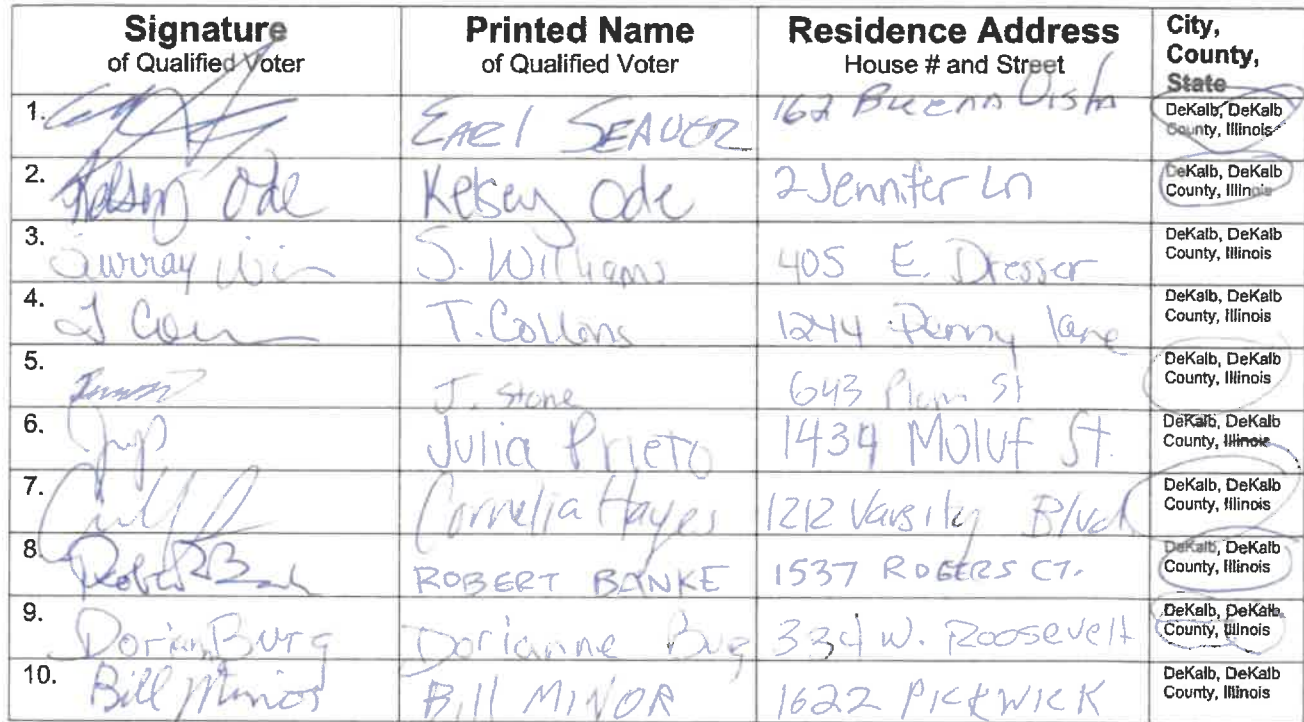 Signature
of Qualified Voter
Printed Name
of Qualified Voter
Residence Address
House # and Street
City,
County,
State
1. EARl SEAVER 162 Buena Vista DeKalb, DeKalb
County, Illinois
2. Kelsey Ode Kelsey Ode 2 Jennifer Ln DeKalb, DeKalb
County, Illinois
3. Surray S. Williams 405 E. Dresser DeKalb, DeKalb
County, Illinois
4. T. Collons 1244 Penny lane DeKalb, DeKalb
County, Illinois
5. J. Stone 643 Plum St DeKalb, DeKalb
County, Illinois
6. Julia Prieto 1434 Moluf St. DeKalb, DeKalb
County, Illinois
7. Cornelia Hayes 1212 Varsity Blvd DeKalb, DeKalb
County, Illinois
8. Robert ROBERT BANKE 1537 ROGERS CT. DeKalb, DeKalb
County, Illinois
9. Dorian Burg Dorianne Bug 334 W. Roosevelt DeKalb, DeKalb
County, Illinois
10. Bill Minor Bill MINOR 1622 PICKWICK DeKalb, DeKalb
County, Illinois